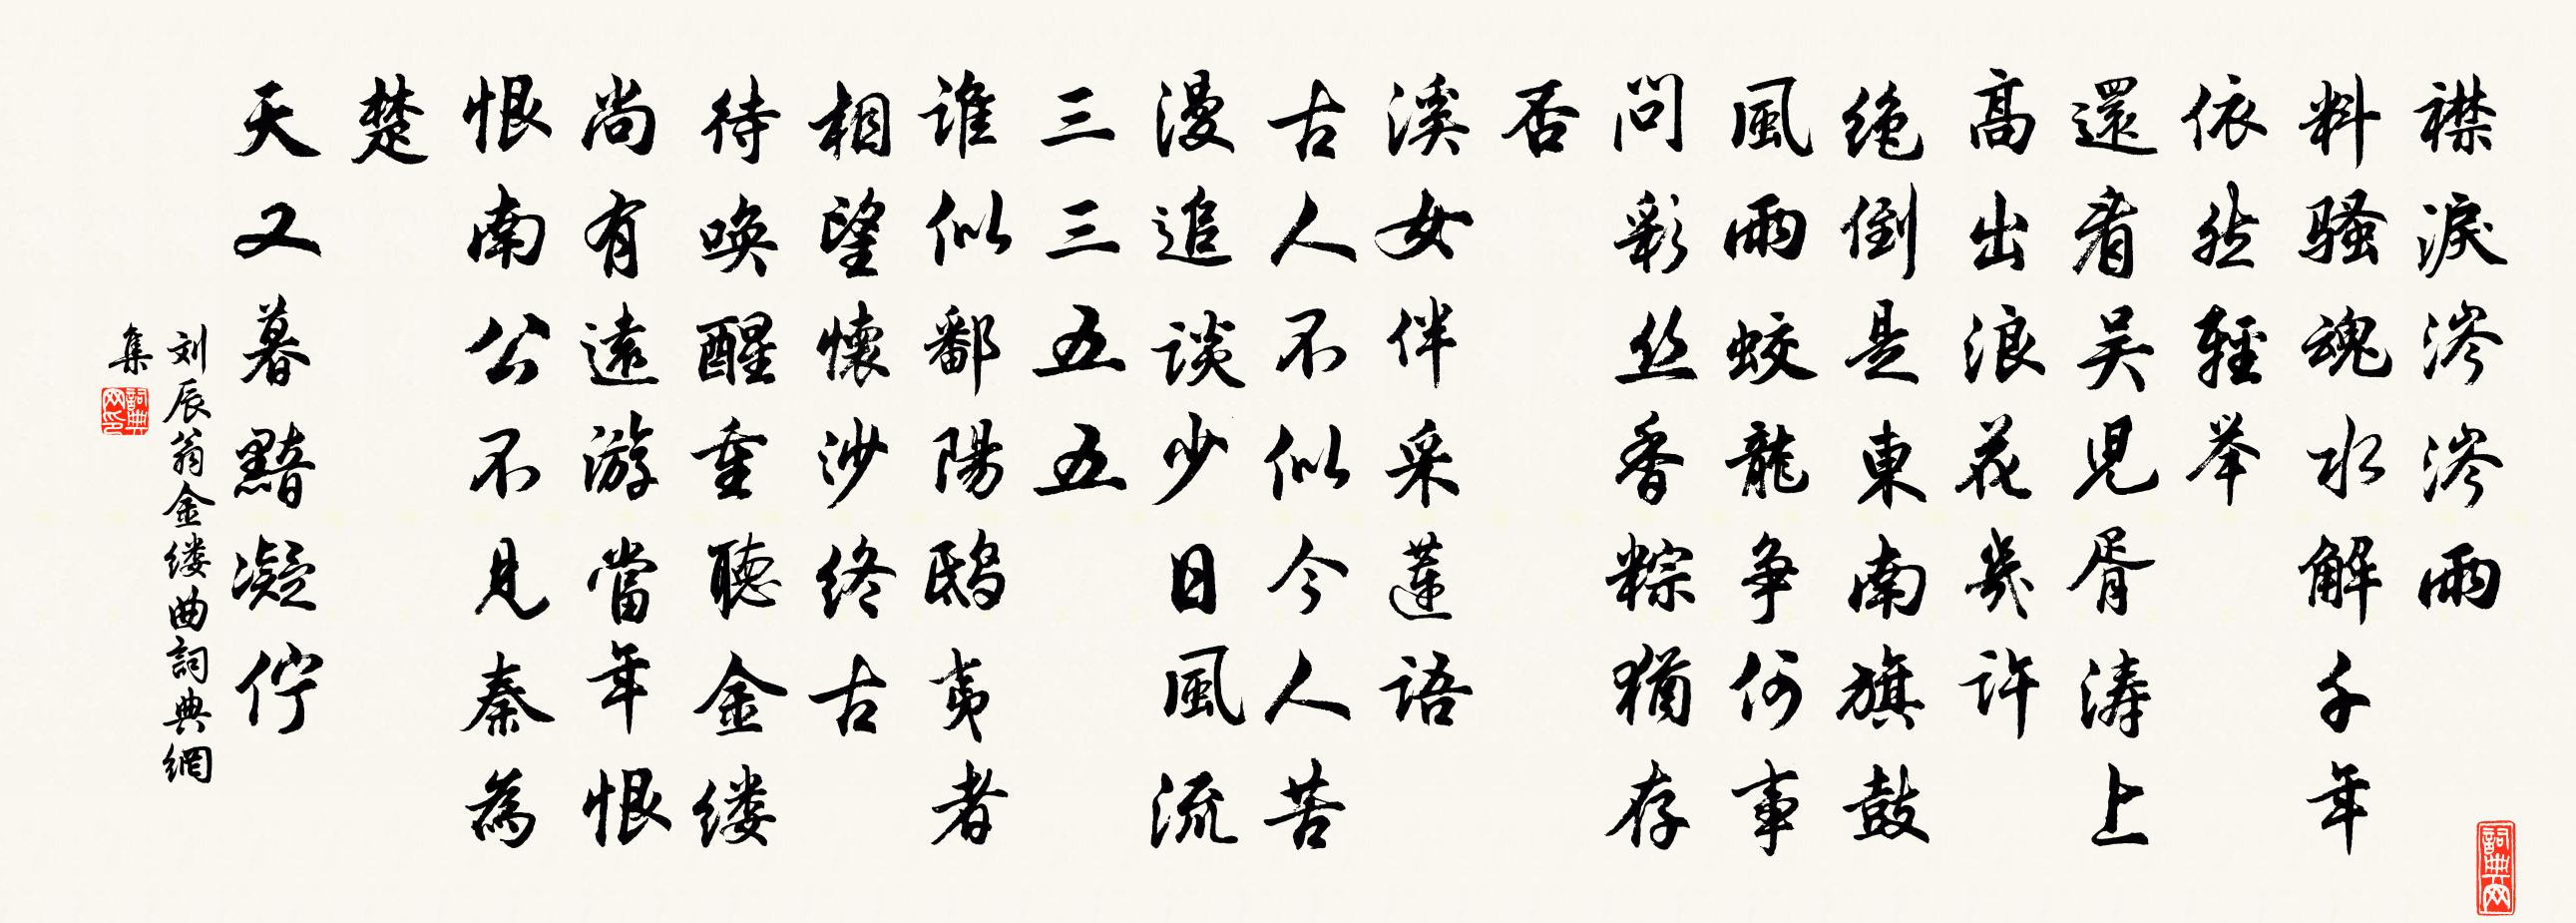 襟淚涔涔雨
料騷魂水解千年
依然輕举
還看吴兒胥涛上
高出浪花幾許
绝倒是東南旗鼓
風雨蛟龍争何事
問彩丝香粽猶存
否
溪女伴采莲語
古人不似今人苦
漫追談少日風流
三三五五
谁似鄱陽鸱夷者
相望懷沙终古
待唤醒重聽金缕
尚有遠游當年恨
恨南公不見秦為
楚
天又暮黯凝伫
刘辰翁金缕曲詞典網
集
詞典网印
詞典网